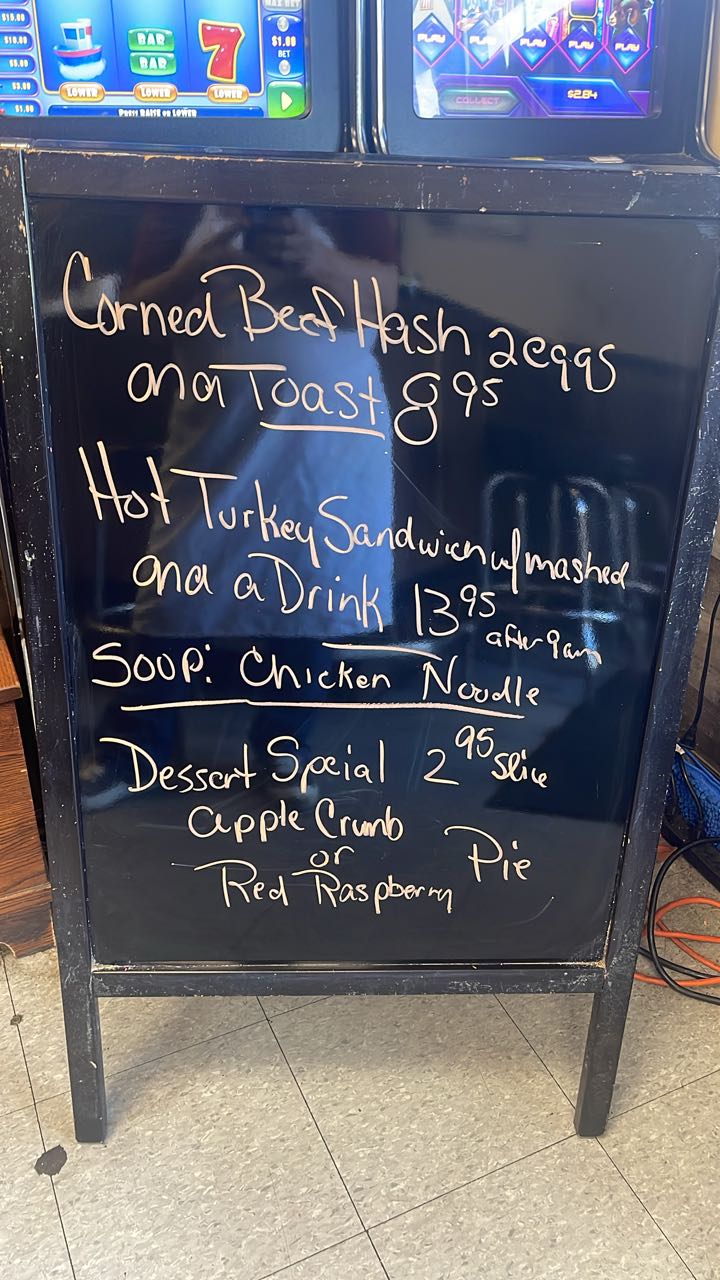 $15.00
$10.00
$5.00
$3.00
$1.00
BAR
BAR
7
$1.00
BET
LOWER
LOWER
LOWER
PRESS RAISE OR LOWER
PLAY
PLAY
PLAY
PLAY
PLAY
COLLECT
$2.64
Corned Beef Hash 2 eggs
and Toast 8 95
Hot Turkey Sandwich w/ mashed
and a Drink 13 95
after 9 am
Soop: Chicken Noodle
Dessert Speial 2 95 slice
apple Crumb
or
Pie
Red Raspberry